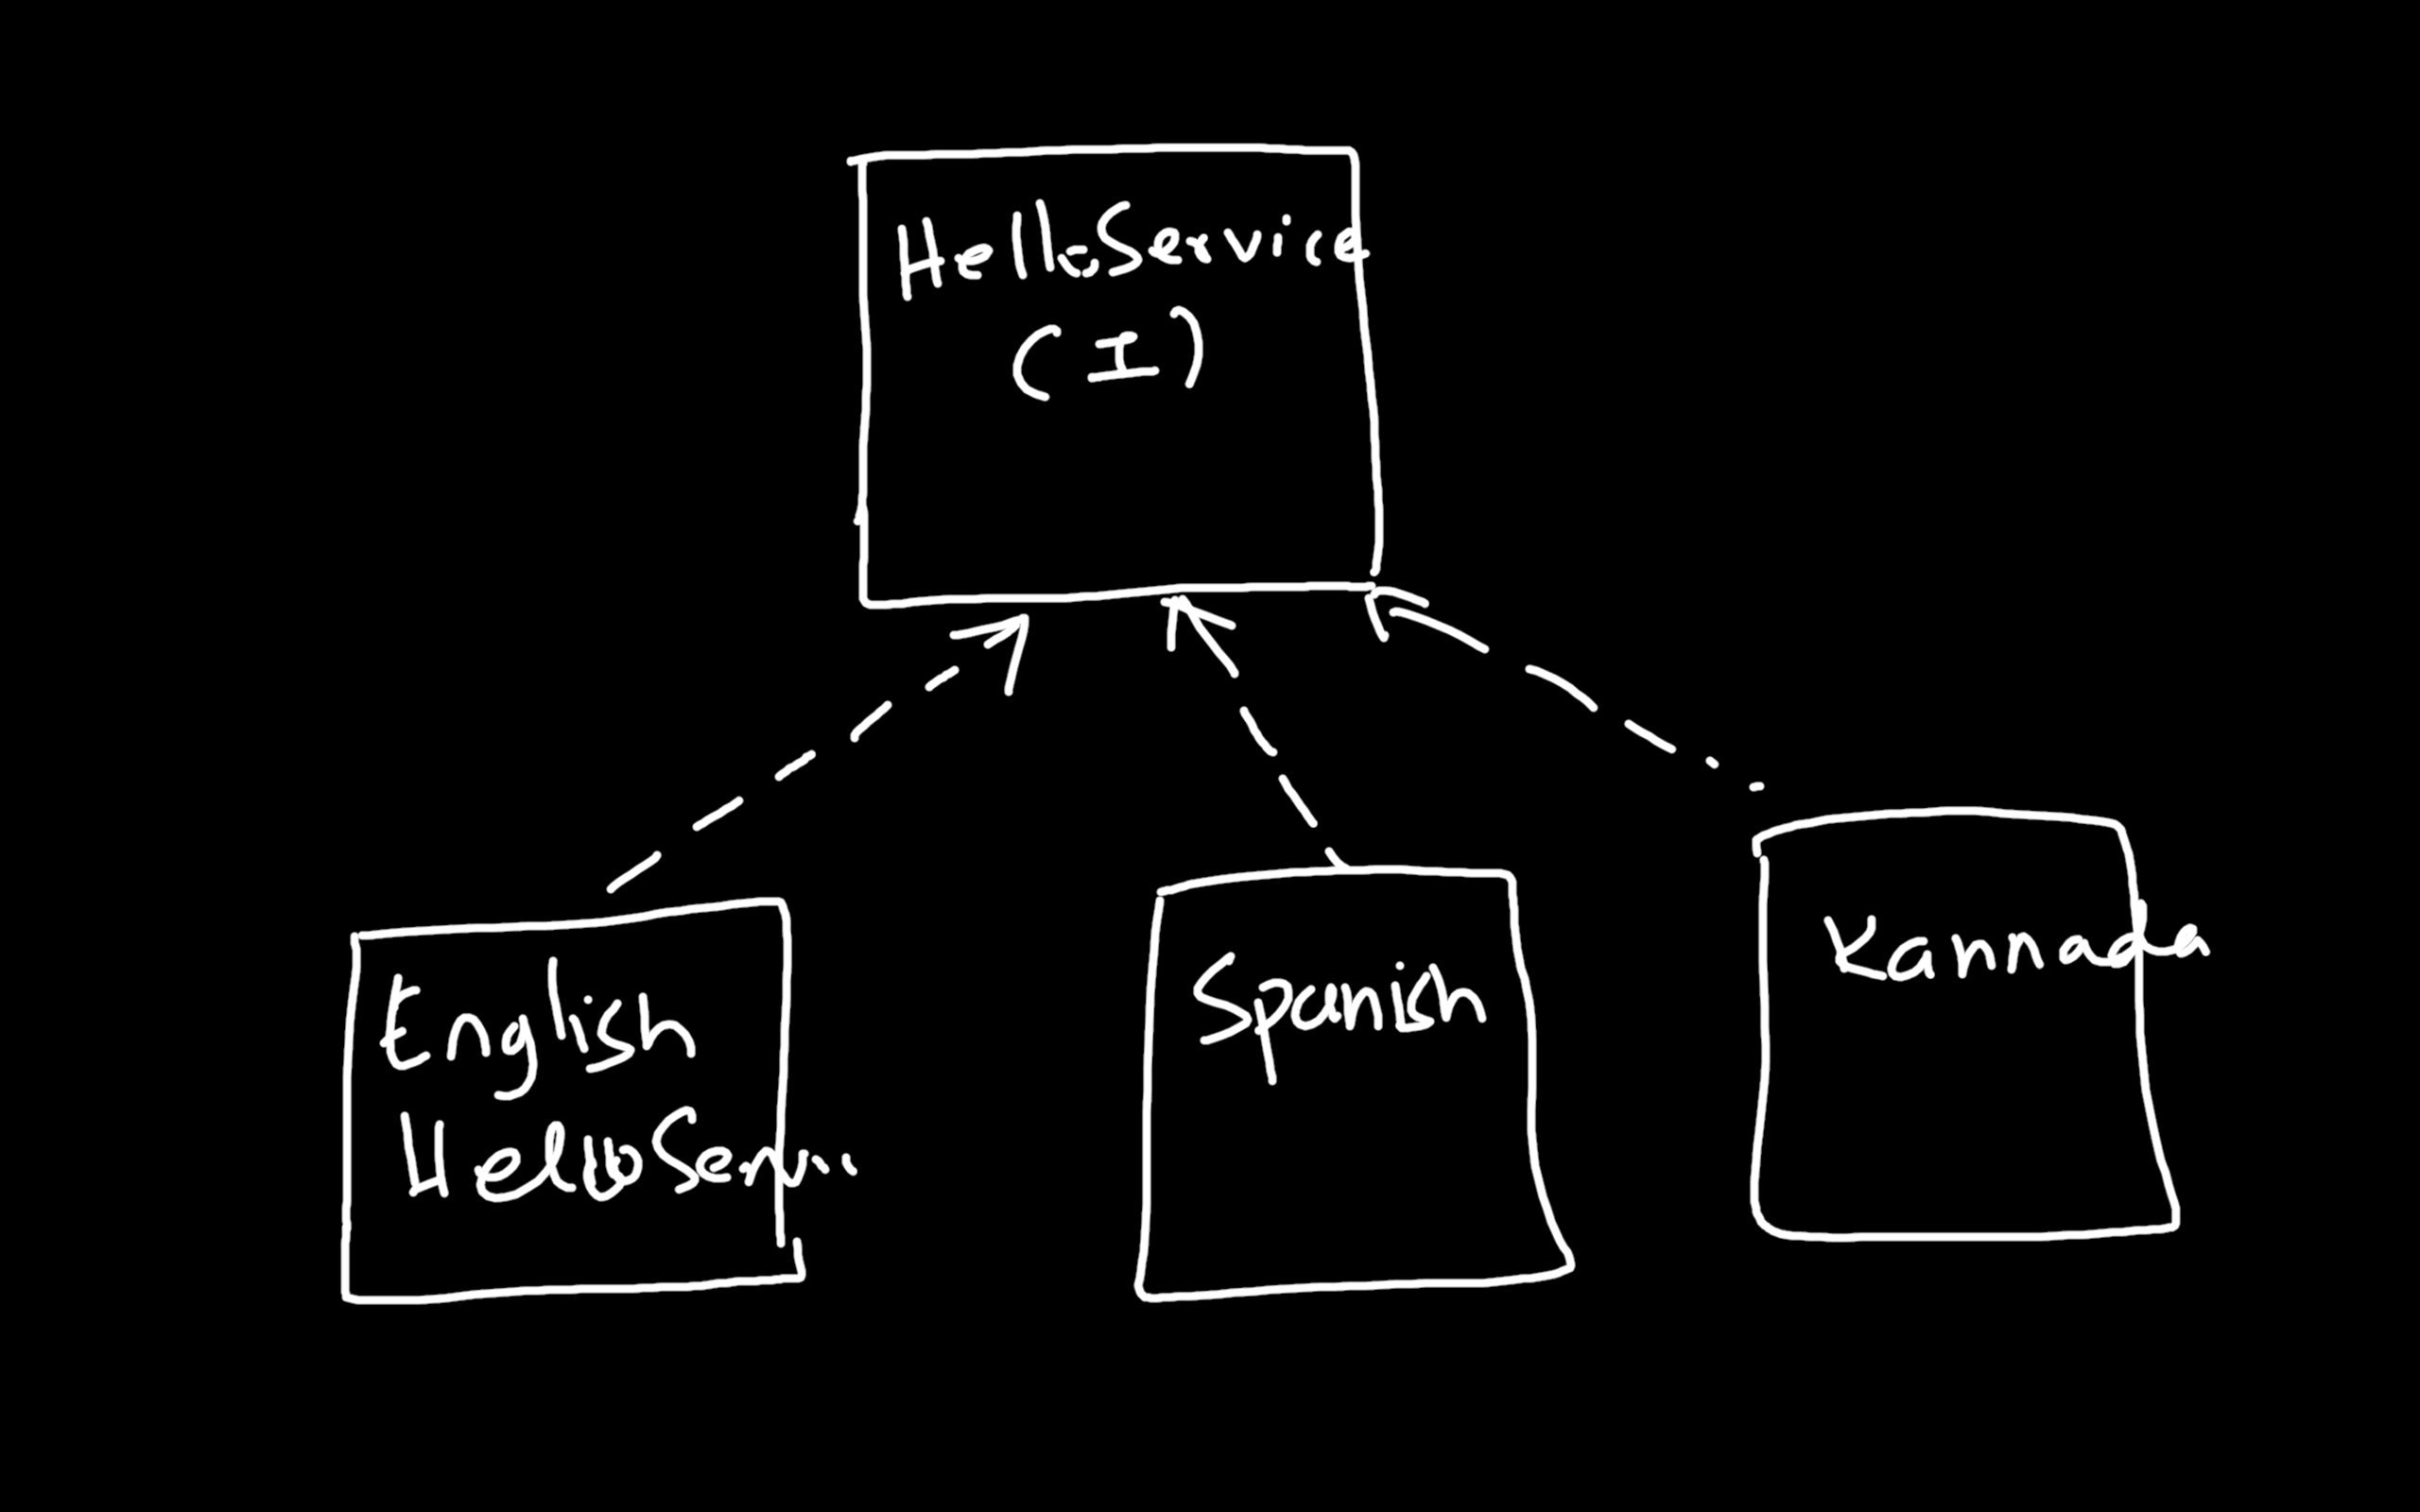 HelloService
(I)
English
HelloServ...
Spanish
Kannada